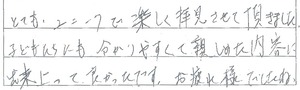 とても、ユニークで楽しく拝見させて頂きました。
子どもたちにも分かりやすくて親しめた内容に
出来上って良かったです。お疲れ様でしたね。